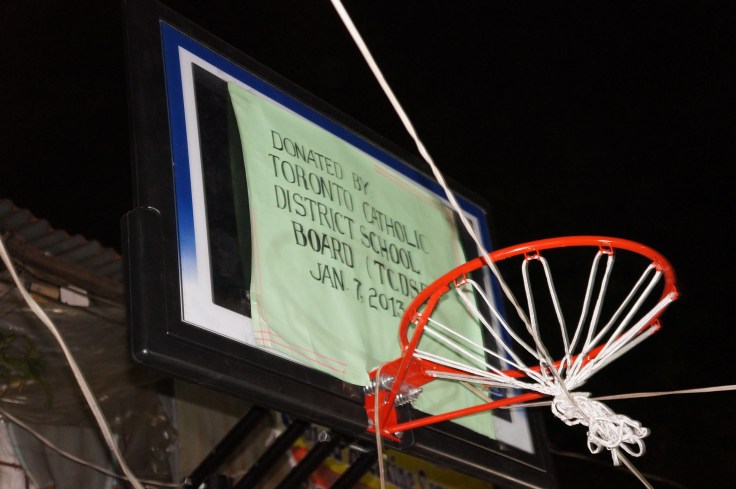 DONATED BY
TORONTO CATHOLIC
DISTRICT SCHOOL
BOARD (TCDSB
JAN. 7, 2013